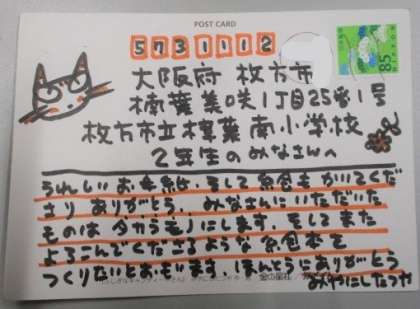 POST CARD
5731112
大阪府 枚方市
楠葉美咲1丁目25番1号
枚方市立樟葉南小学校
2年生のみなさんへ
85
うれしい お手紙、そして 魚絵も かいてくだ
さり ありがとう。みなさんに いただいた
ものは タカラモノにします。そして また
よろこんでくださるような 魚絵本を
つくりたいとおもいます。ほんとうに ありがとう
みやにしたつや